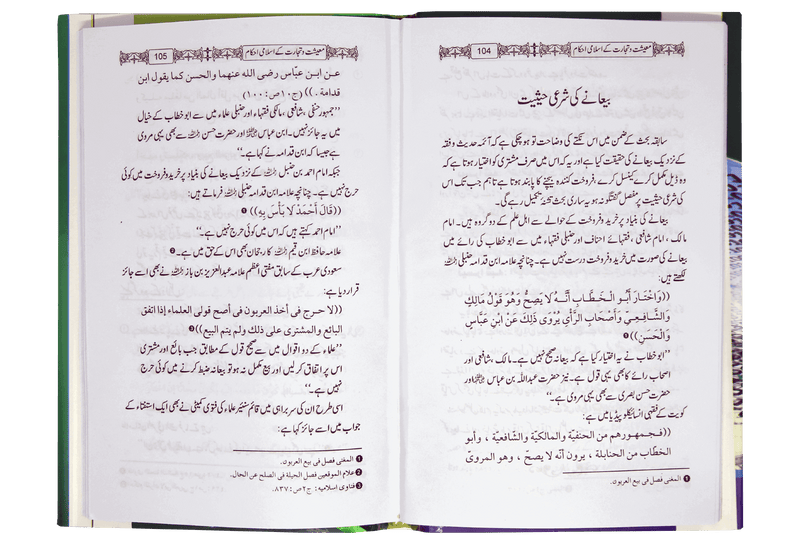 معیشت و تجارت کے اسلامی احکام
104
بیعانے کی شرعی حیثیت
سابقہ بحث کے ضمن میں اس نکتے کی وضاحت تو ہو چکی ہے کہ آئمہ حدیث و فقہ
کے نزدیک بیعانے کی حقیقت کیا ہے اور یہ کہ اس میں صرف مشتری کو اختیار ہوتا ہے کہ
وہ ڈیل مکمل کرے کینسل کرے، فروخت کنندہ بیچنے کا پابند ہوتا ہے تاہم جب تک اس
کی شرعی حیثیت پر مفصل گفتگو نہ ہو یہ ساری بحث تشنۂ تکمیل رہے گی۔
بیعانے کی بنیاد پر خرید و فروخت کے حوالے سے اہل علم کے دو گروہ ہیں۔ امام
مالک، امام شافعی، فقہائے احناف اور حنبلی فقہاء میں سے ابو خطاب کی رائے میں
بیعانے کی صورت میں خرید و فروخت درست نہیں ہے۔ چنانچہ علامہ ابن قدامہ حنبلی
لکھتے ہیں:
((وَاخْتَارَ أَبُو الْخَطَّابِ أَنَّهُ لَا يَصِحُّ وَهُوَ قَوْلُ مَالِكٍ
وَالشَّافِعِيِّ وَأَصْحَابِ الرَّأْيِ يُرْوَى ذَلِكَ عَنْ ابْنِ عَبَّاسٍ
وَالْحَسَنِ)) ❶
”ابو خطاب نے یہ اختیار کیا ہے کہ بیعانہ صحیح نہیں ہے۔ مالک، شافعی اور
اصحاب رائے کا بھی یہی قول ہے۔ نیز حضرت عبداللہ بن عباس اور
حضرت حسن بصری سے بھی یہی مروی ہے۔“
کویت کے فقہی انسائیکلوپیڈیا میں ہے:
((فجمهورهم من الحنفية والمالكية والشافعية، وأبو
الخطاب من الحنابلة، يرون أنه لا يصح، وهو المروي
❶ المغنی فصل فی بیع العربون۔
معیشت و تجارت کے اسلامی احکام
105
عن ابن عبّاس رضی الله عنهما والحسن كما يقول ابن
قدامة۔)) (ج۱۰ص:۱۰۰)
”جمہور حنفی، شافعی، مالکی فقہاء اور حنبلی علماء میں سے ابو خطاب کے خیال
میں یہ جائز نہیں۔ ابن عباس اور حضرت حسن سے بھی یہی مروی
ہے جیسا کہ ابن قدامہ نے کہا ہے۔“
جبکہ امام احمد بن حنبل کے نزدیک بیعانے کی بنیاد پر خرید و فروخت میں کوئی
حرج نہیں ہے۔ چنانچہ علامہ ابن قدامہ حنبلی فرماتے ہیں:
((قَالَ أَحْمَدُ لَا بَأْسَ بِهِ)) ❶
”امام احمد کہتے ہیں کہ اس میں کوئی حرج نہیں ہے۔“
علامہ حافظ ابن قیم کا رجحان بھی اس کے حق میں ہے۔ ❷
سعودی عرب کے سابق مفتی اعظم علامہ عبدالعزیز بن باز نے بھی اسے جائز
قرار دیا ہے:
((لا حرج فی أخذ العربون فی أصح قولی العلماء إذا اتفق
البائع والمشتری علی ذلك ولم يتم البيع)) ❸
”علماء کے دو اقوال میں سے صحیح قول کے مطابق جب بائع اور مشتری
اس پر اتفاق کر لیں اور بیع مکمل نہ ہو تو بیعانہ ضبط کرنے میں کوئی حرج
نہیں ہے۔“
اسی طرح ان کی سربراہی میں قائم سینئر علماء کی فتویٰ کمیٹی نے بھی ایک استفتاء کے
جواب میں اسے جائز کہا ہے:
❶ المغنی فصل فی بیع العربون۔
❷ علام الموقعین فصل الحیلة فی الصلح عن الحال۔
❸ فتاوی إسلامیه: ج۲ص:۸۳۷۔